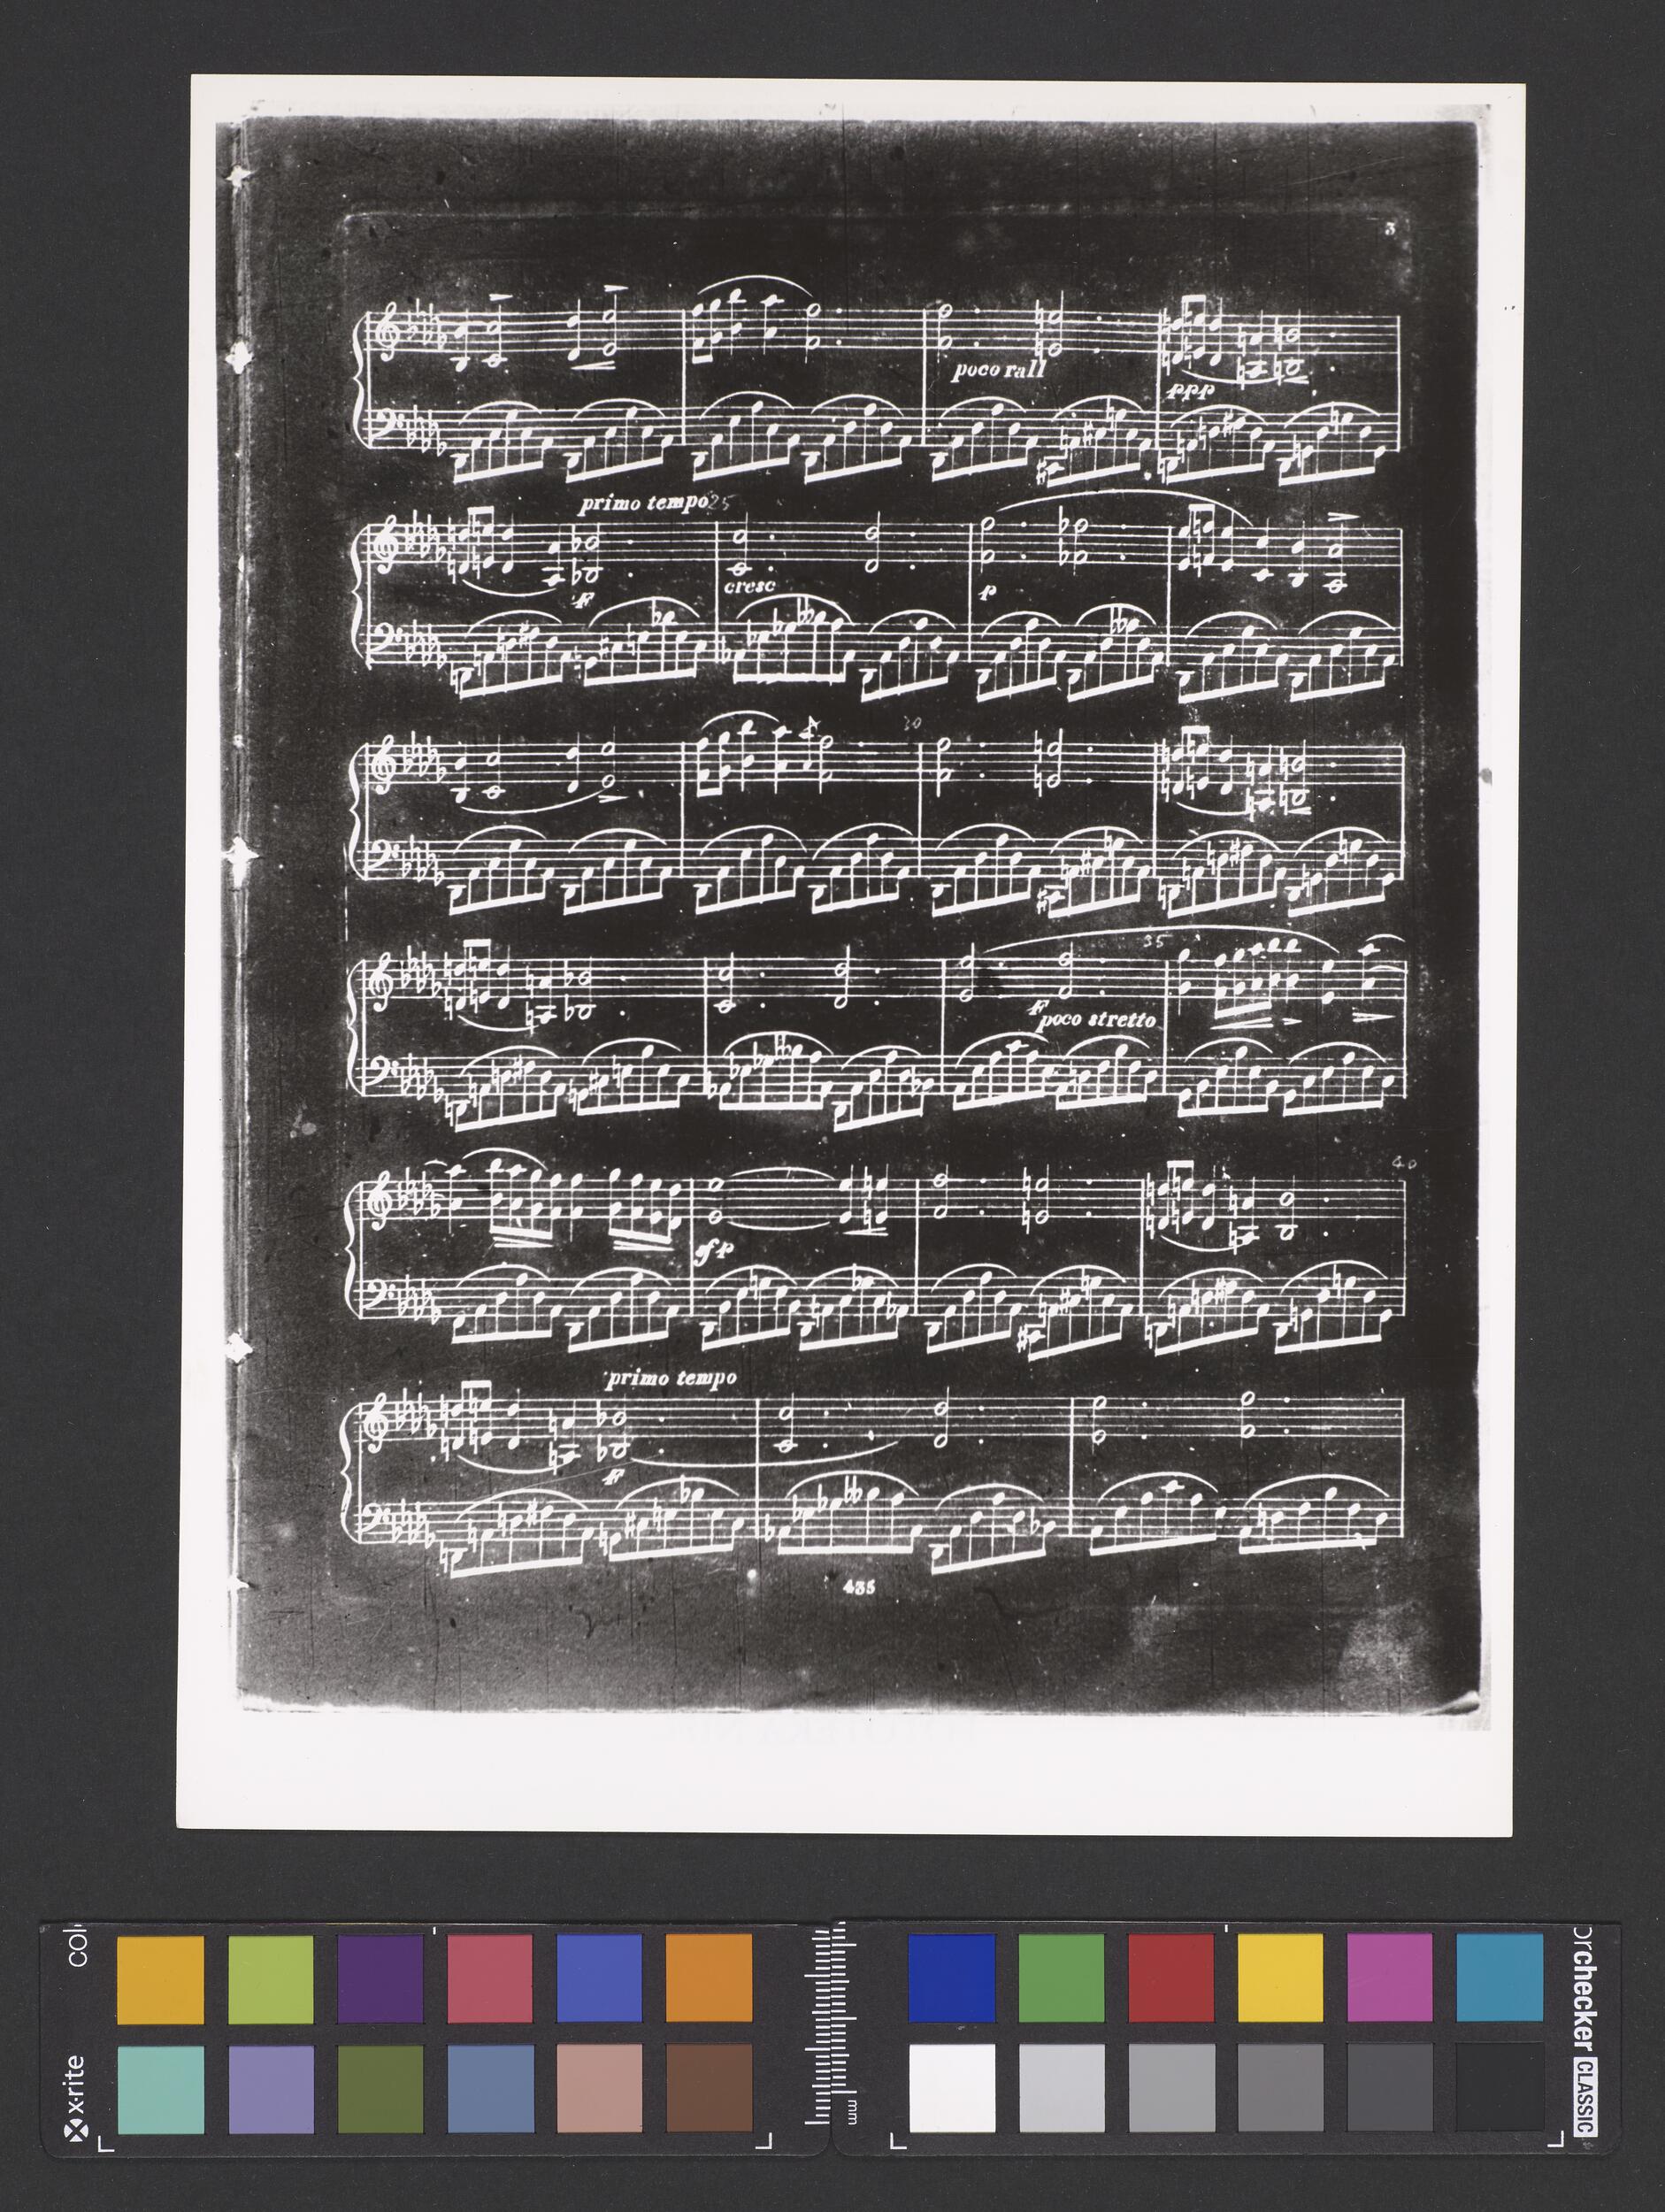 3
poco rall
ppp
primo tempo 25
cresc
F
p
30
35
F
poco stretto
40
sfp
primo tempo
F
435
col
orchecker CLASSIC
x-rite
mm